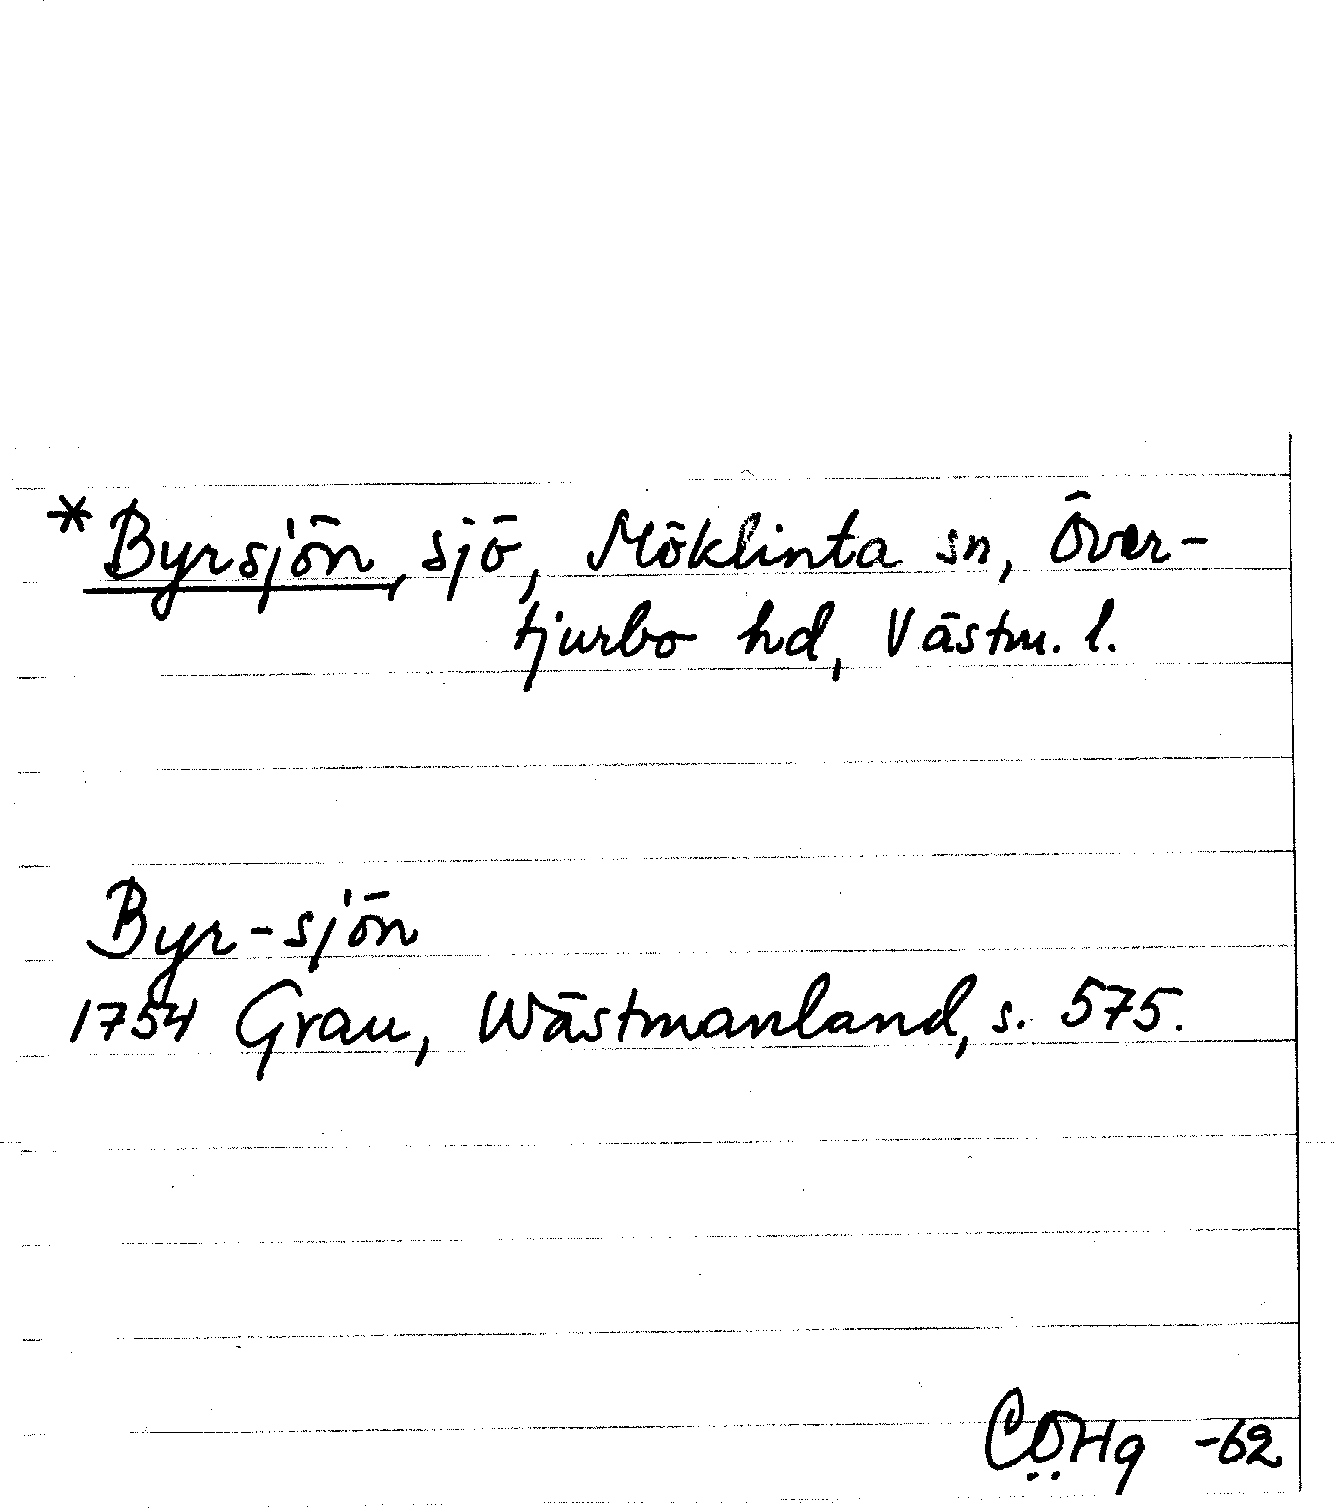 *Byrsjön, sjö, Möklinta sn, Över-
tjurbo hd, Västm. l.
Byr-sjön
1754 Grau, Wästmanland, s. 575.
CÖHg -62